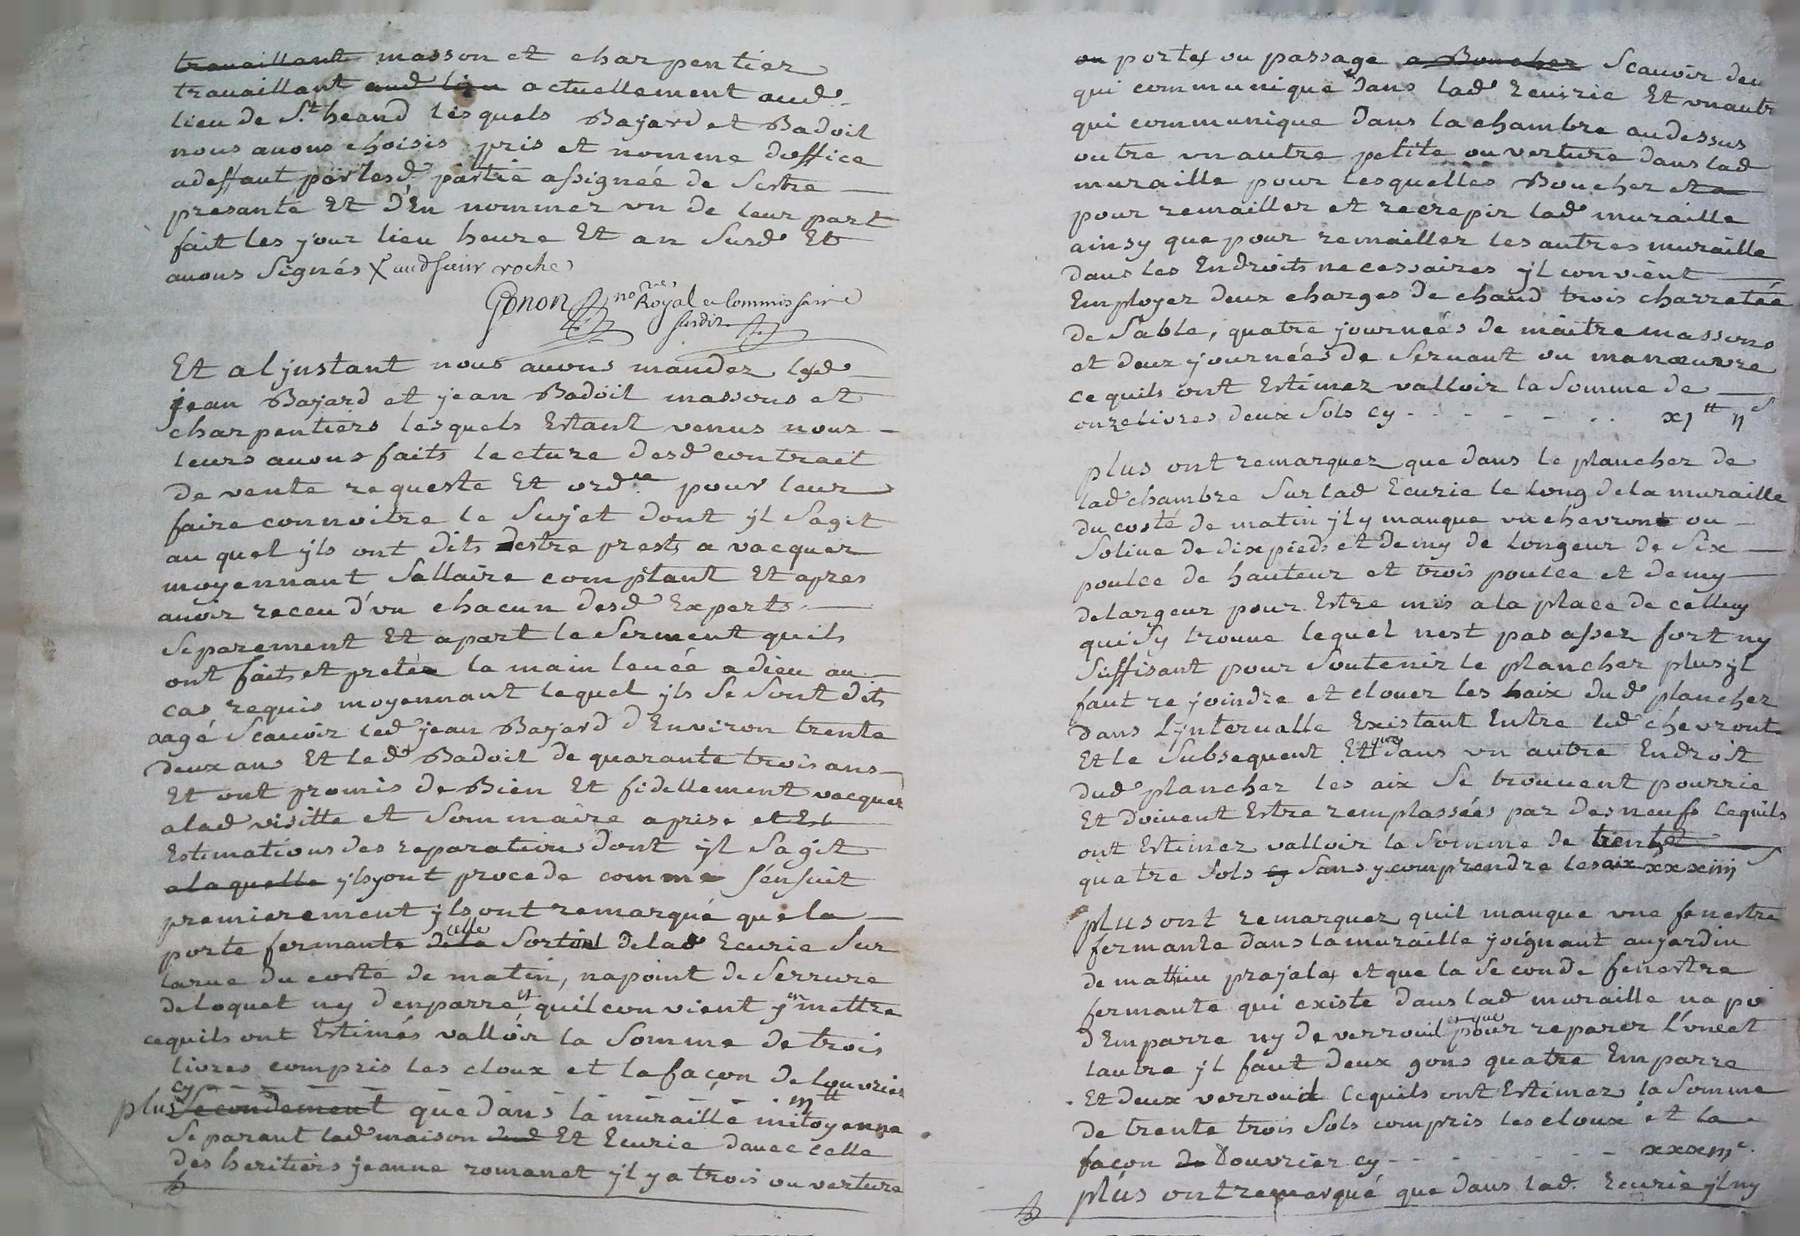 travaillant masson et charpentier
travaillant aud lieu actuellement aud.
lieu de St. heand lesquels Bajard et Badoil
nous avons choisis pris et nomme doffice
adeffaut par lesd. partie assignée de Sestre
presanté Et d'En nommer un de leur part
fait les jour lieu heure Et an Susd Et
avons Signés X aud sieur roche
Gonon nore Royal et Commissaire
susdit
Et al jnstant nous avons mandez led
jean Bajard et jean Badoil massons et
charpentiers lesquels Estant venus nour
leurs avons faits lecture desd contract
de vente requeste Et ordce pour leur
faire connoitre le Sujet dont jl Sagit
au quel jls ont dits destre prests a vacquer
moyennant Sallaire comptant Et apres
avoir receu d'un chacun desd Experts
Separement Et apart le Serment quils
ont faits et pretés la main levée adieu au
cas requis moyennant lequel jls Se Sont dits
aagé Scavoir led jean Bajard d'Environ trente
deux ans Et led Badoil de quarante trois ans
Et ont promis de Bien Et fidellement vacquer
alad visitte et Sommaire aprise et Est
Estimations des reparations dont jl Sagit
alaquelle jlsyont procede comme S'ensuit
premierement jls ont remarqué quela
porte fermante dela celle Sortant delad Ecurie Sur
larue du costé de matin, napoint de Serrure
deloquet ny d'enparre et quil convient y en mettre
cequils ont Estimés valloir la Somme de trois
livres compris les cloux et la façon delouvrier
cy - - - - - - - iij tt
plus Secondement que dans la muraille mitoyenne
Separant lad maison dud Et Ecurie davec celle
des heritiers jeanne romanet jl y a trois ouverture
ou portes ou passage a Boucher Scavoir deu
qui communique dans lad Ecurie Et unautr
qui communique dans la chambre audessus
outre un autre petite ouverture dans lad
muraille pour lesquelles Boucher et a
pour remailler et recrepir lad muraille
ainsy que pour remailler les autres muraille
dans les Endroits necessaires jl convient
Employer deux charges de chaud trois charretée
de Sable, quatre journeés de maitre massons
et deux journées de Servant ou manœuvre
cequils ont Estimez valloir la Somme de
onze livres deux Sols cy - - - - - - - xj tt ij s
plus ont remarquez que dans le plancher de
lad chambre Sur lad Ecurie le long dela muraille
du costé de matin jl y manque un chevront ou
Solive de dix pieds et demy de longeur de Six
poulce de hauteur et trois poulce et demy
delargeur pour Estre mis a la place de celluy
qui Sy trouve lequel nest pas assez fort ny
Suffisant pour Soutenir le plancher plus jl
faut rejoindre et clouer les haix dud plancher
dans L'jntervalle Existant Entre led chevront
Et le Subsequent Et que dans un autre Endroit
dud plancher les aix Se trouvent pourrie
Et doivent Estre remplassées par des neufs Cequils
ont Estimez valloir la Somme de trente
quatre Sols cy Sans y comprendre les aix xxxiiij s
plus ont remarquez quil manque une fenestre
fermante dans la muraille joignant aujardin
de mathieu prajalas et que la Seconde fenestre
fermante qui existe dans lad muraille na poi
d'Emparre ny de verrouil et que pour reparer l'uneet
lautre jl faut deux gons quatre Emparre
Et deux verrouil Cequils ont Estimez la Somme
de trente trois Sols compris les cloux et la
façon de Douvrier cy - - - - - - - xxxiij s
plus ont remarqué que dans lad. Ecurie jl ny